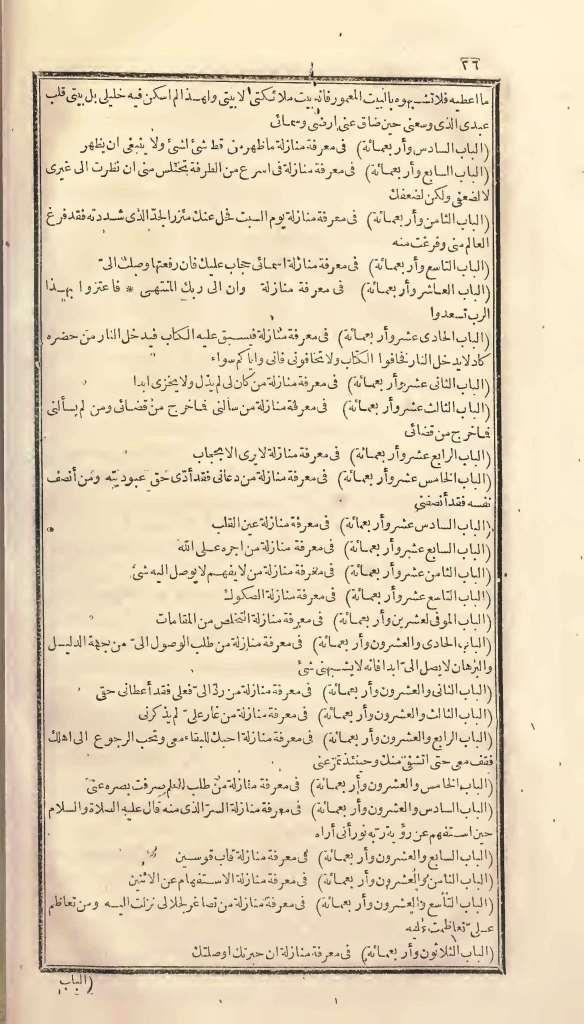 ٢٦
ما أعطيه فلا تشبهوه بالبيت المعمور فانه بيت ملائكتى لا بيتى ولهذا لم اسكن فيه خليلى بل بيتى قلب
عبدى الذى وسعنى حين ضاق عنى ارضى وسمائى
(الباب السادس وأربعمائة) فى معرفة منازلة ما ظهر من قط شئ لشئ ولا ينبغى ان يظهر
(الباب السابع وأربعمائة) فى معرفة منازلة فى اسرع من الطرفة تختلس منى ان نظرت الى غيرى
لا لضعفى ولكن لضعفك
(الباب الثامن وأربعمائة) فى معرفة منازلة يوم السبت فحل عنك مئزر الجد الذى شددته فقد فرغ
العالم منى وفرغت منه
(الباب التاسع وأربعمائة) فى معرفة منازلة اسمائى حجاب عليك فان رفعتها وصلت الىّ
(الباب العاشر وأربعمائة) فى معرفة منازلة وان الى ربك المنتهى * فاعتزوا بهذا
الرب تسعدوا
(الباب الحادى عشر وأربعمائة) فى معرفة منازلة فيسبق عليه الكتاب فيدخل النار من حضره
كاد لا يدخل النار فخافوا الكتاب ولا تخافونى فانى واياكم سواء
(الباب الثانى عشر وأربعمائة) فى معرفة منازلة من كان لى لم يذل ولا يخزى ابدا
(الباب الثالث عشر وأربعمائة) فى معرفة منازلة من سألنى فما خرج من قضائى ومن لم يسألنى
فما خرج من قضائى
(الباب الرابع عشر وأربعمائة) فى معرفة منازلة لا يرى الا بحجاب
(الباب الخامس عشر وأربعمائة) فى معرفة منازلة من دعانى فقد أدّى حق عبوديته ومن أنصف
نفسه فقد أنصفنى
(الباب السادس عشر وأربعمائة) فى معرفة منازلة عين القلب
(الباب السابع عشر وأربعمائة) فى معرفة منازلة من اجره على الله
(الباب الثامن عشر وأربعمائة) فى معرفة منازلة من لا يفهم لا يوصل اليه شئ
(الباب التاسع عشر وأربعمائة) فى معرفة منازلة الصكوك
(الباب الموفى لعشرين وأربعمائة) فى معرفة منازلة التخلص من المقامات
(الباب الحادى والعشرون وأربعمائة) فى معرفة منازلة من طلب الوصول الىّ من جهة الدليل
والبرهان لا يصل الىّ ابدا فانه لا يشبهنى شئ
(الباب الثانى والعشرون وأربعمائة) فى معرفة منازلة من ردّ الىّ فعلى فقد أعطانى حقى
(الباب الثالث والعشرون وأربعمائة) فى معرفة منازلة من غار علىّ لم يذكرنى
(الباب الرابع والعشرون وأربعمائة) فى معرفة منازلة احبك للبقاء معى وتحب الرجوع الى اهلك
فقف معى حتى اتشفى منك وحينئذ تمر عنى
(الباب الخامس والعشرون وأربعمائة) فى معرفة منازلة من طلب العلم صرفت بصره عنى
(الباب السادس والعشرون وأربعمائة) فى معرفة منازلة السرّ الذى منه قال عليه الصلاة والسلام
حين استفهم عن رؤية ربه نور أنى أراه
(الباب السابع والعشرون وأربعمائة) فى معرفة منازلة قاب قوسين
(الباب الثامن والعشرون وأربعمائة) فى معرفة منازلة الاستفهام عن الاثنين
(الباب التاسع والعشرون وأربعمائة) فى معرفة منازلة من تصاغر لجلالى نزلت اليه ومن تعاظم
علىّ تعاظمت عليه
(الباب الثلاثون وأربعمائة) فى معرفة منازلة ان حيرتك اوصلتك
(الباب